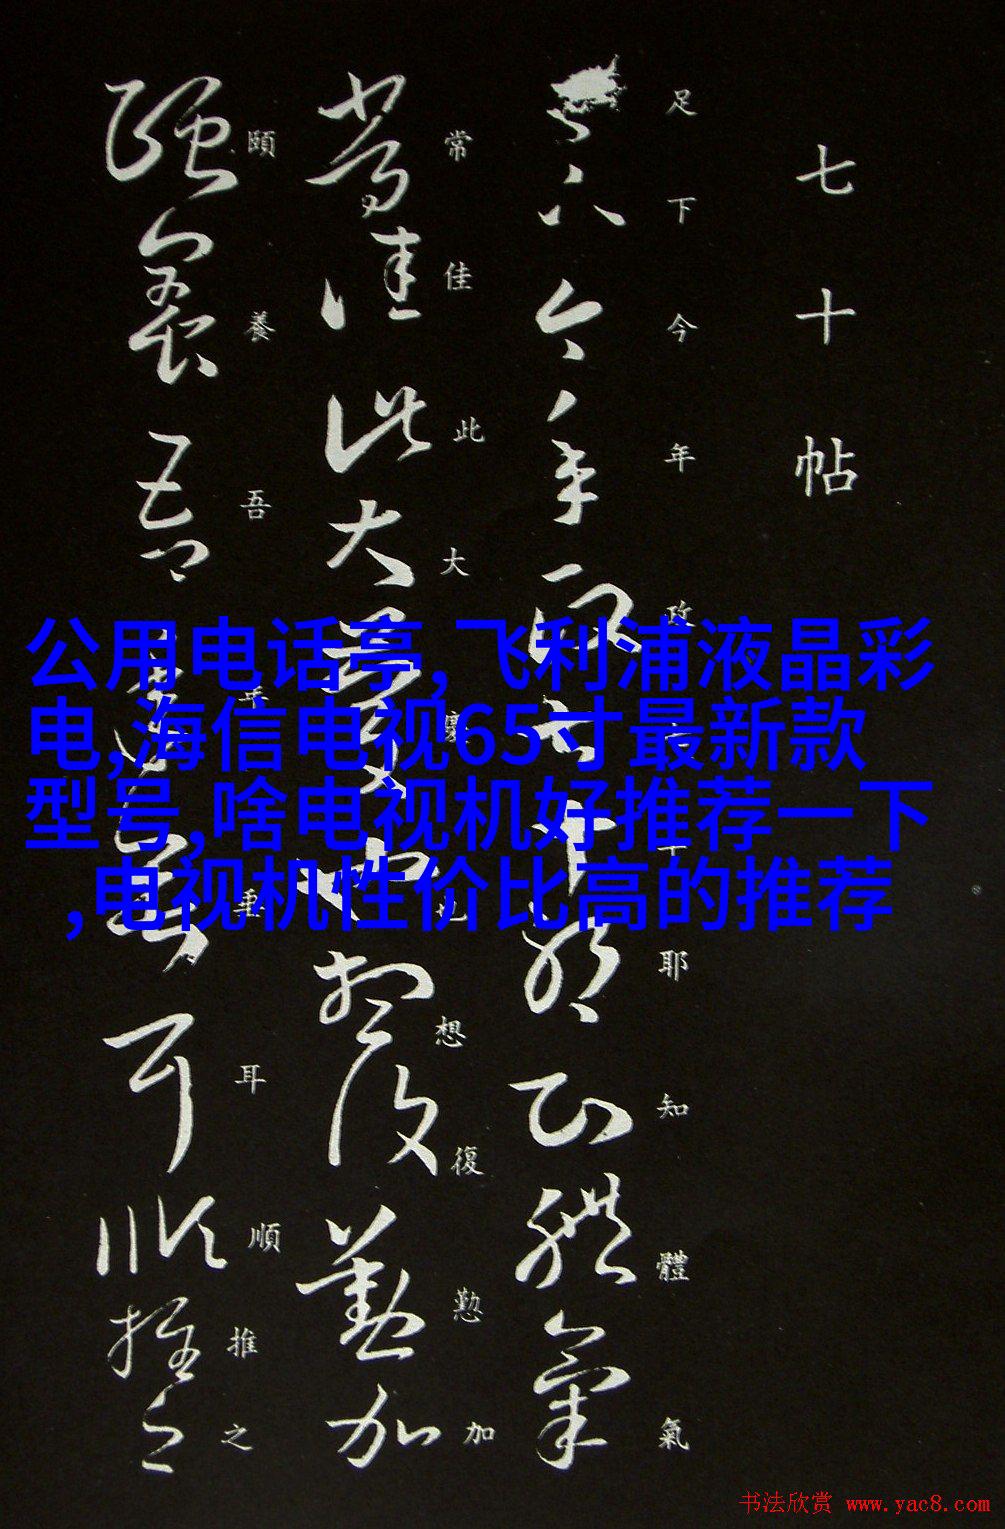 七十帖
足下今年政七十耶知體氣
常佳此大慶也想復懃加
頤養吾年垂耳順推之
公用电话亭,飞利浦液晶彩
电,海信电视65寸最新款
型号,啥电视机好推荐一下
,电视机性价比高的推荐
书法欣赏 www.yac8.com